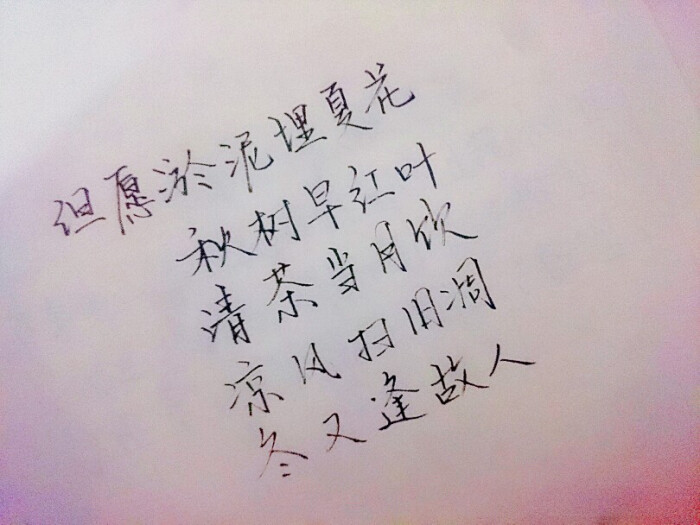 但愿淤泥埋夏花
秋树早红叶
清茶当月饮
凉风扫旧凋
冬又逢故人